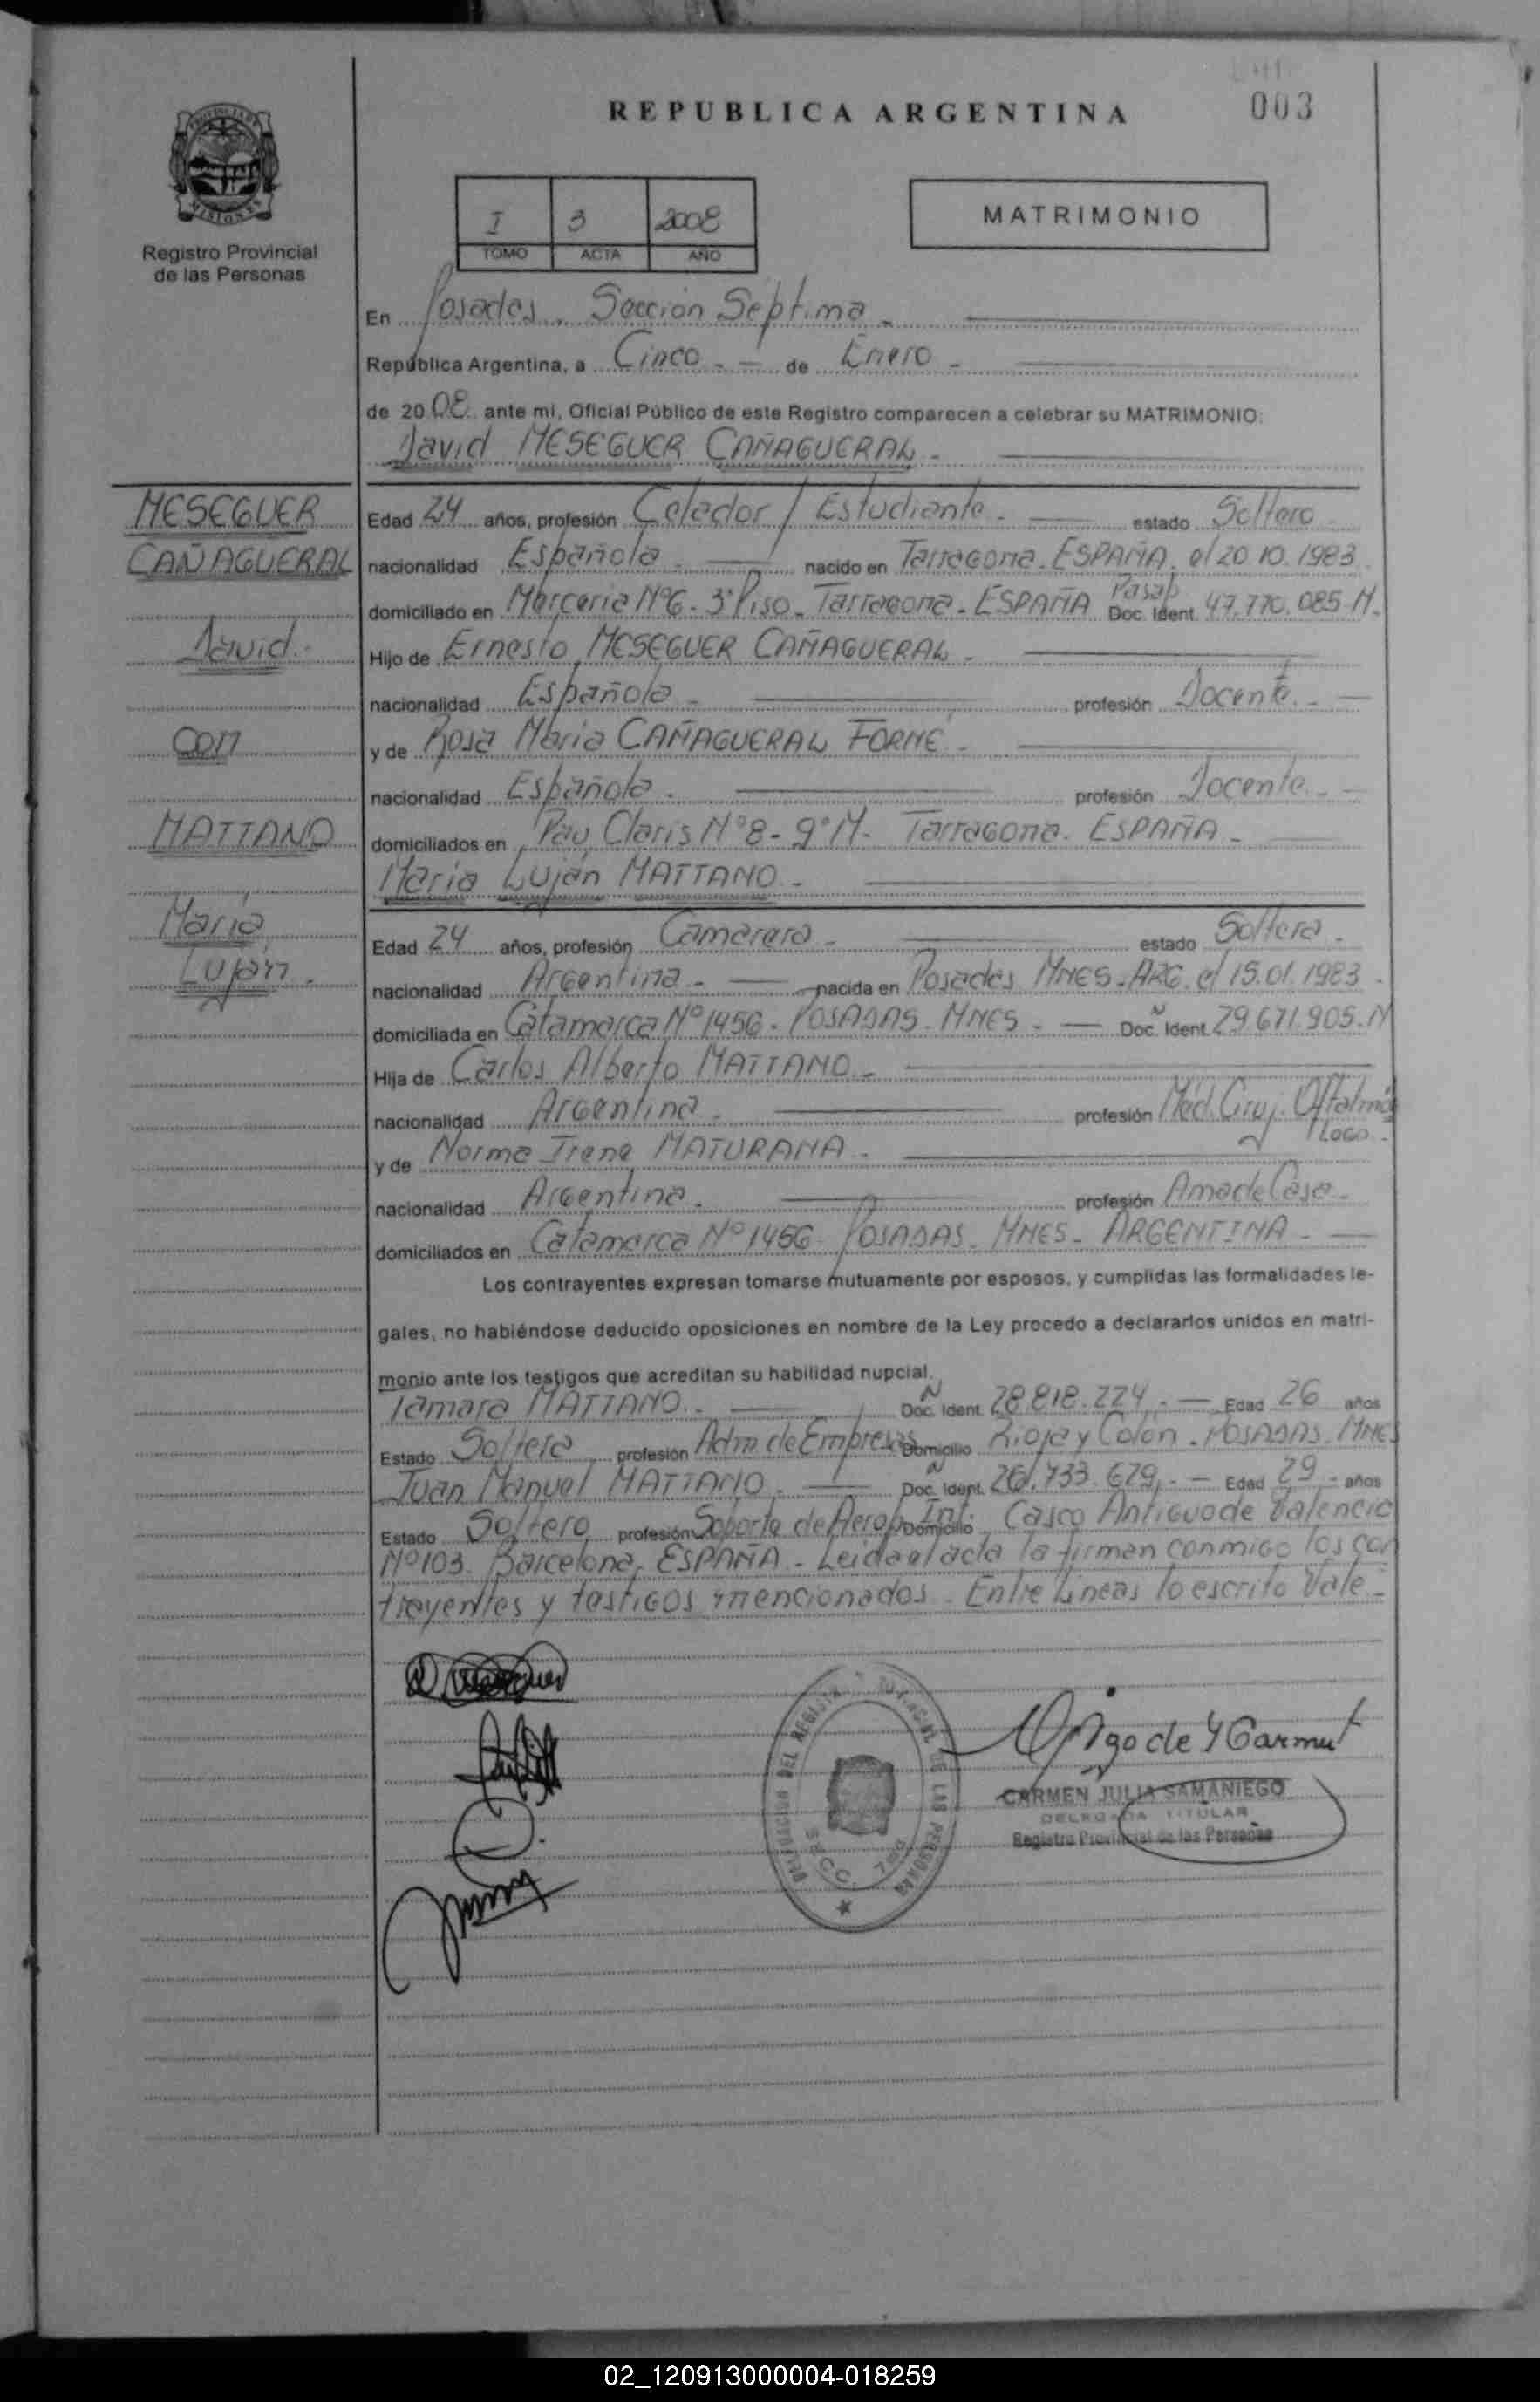 003
REPUBLICA ARGENTINA
PROVINCIA DE
MISIONES
Registro Provincial
de las Personas
I 3 2008
TOMO ACTA AÑO
MATRIMONIO
En Posadas. Sección Séptima -
República Argentina, a Cinco - de Enero -
de 2008 ante mi, Oficial Público de este Registro comparecen a celebrar su MATRIMONIO:
David MESEGUER CAÑAGUERAL -
MESEGUER
CAÑAGUERAL
David -
con
MATTANO
María
Luján -
Edad 24 años, profesión Celador / Estudiante - estado Soltero
nacionalidad Española - nacido en Tarragona. ESPAÑA. el 20.10.1983
domiciliado en Merceria Nº6 - 3º Piso - Tarragona - ESPAÑA Pasap Doc. Ident. 47.770.085 N.
Hijo de Ernesto MESEGUER CAÑAGUERAL -
nacionalidad Española - profesión Docente -
y de Rosa María CAÑAGUERAL FORNÉ -
nacionalidad Española - profesión Docente -
domiciliados en Pau Claris Nº8 - 9º N - Tarragona. ESPAÑA -
María Luján MATTANO -
Edad 24 años, profesión Camarera - estado Soltera -
nacionalidad Argentina - nacida en Posadas MNES - ARG. el 15.01.1983 -
domiciliada en Catamarca Nº1456 - POSADAS - MNES - Doc. Ident. 29.671.905. N
Hija de Carlos Alberto MATTANO -
nacionalidad Argentina - profesión Méd. Ciruj. Oftalmó
logo -
y de Norma Irene MATURANA -
nacionalidad Argentina - profesión Ama de Casa -
domiciliados en Catamarca Nº1456 - POSADAS - MNES - ARGENTINA -
Los contrayentes expresan tomarse mutuamente por esposos, y cumplidas las formalidades le-
gales, no habiéndose deducido oposiciones en nombre de la Ley procedo a declararlos unidos en matri-
monio ante los testigos que acreditan su habilidad nupcial.
Tamara MATTANO - Doc. Ident. 28.818.224 - Edad 26 años
Estado Soltera profesión Adm de Empresas Domicilio Rioja y Colón - POSADAS. MNES
Juan Manuel MATTANO - Doc. Ident. 26.733.679 - Edad 29 - años
Estado Soltero profesión Soporte de Aerop. Int. Domicilio Casco Antiguo de Valencia
Nº103. Barcelona - ESPAÑA - Leida el acta la firman conmigo los con
trayentes y testigos mencionados - Entre Líneas lo escrito Vale -
DELEGACION DEL REGISTRO PROVINCIAL DE LAS PERSONAS
SECC. 7ma
CARMEN JULIA SAMANIEGO
DELEGADA TITULAR
Registro Provincial de las Personas
02_120913000004-018259